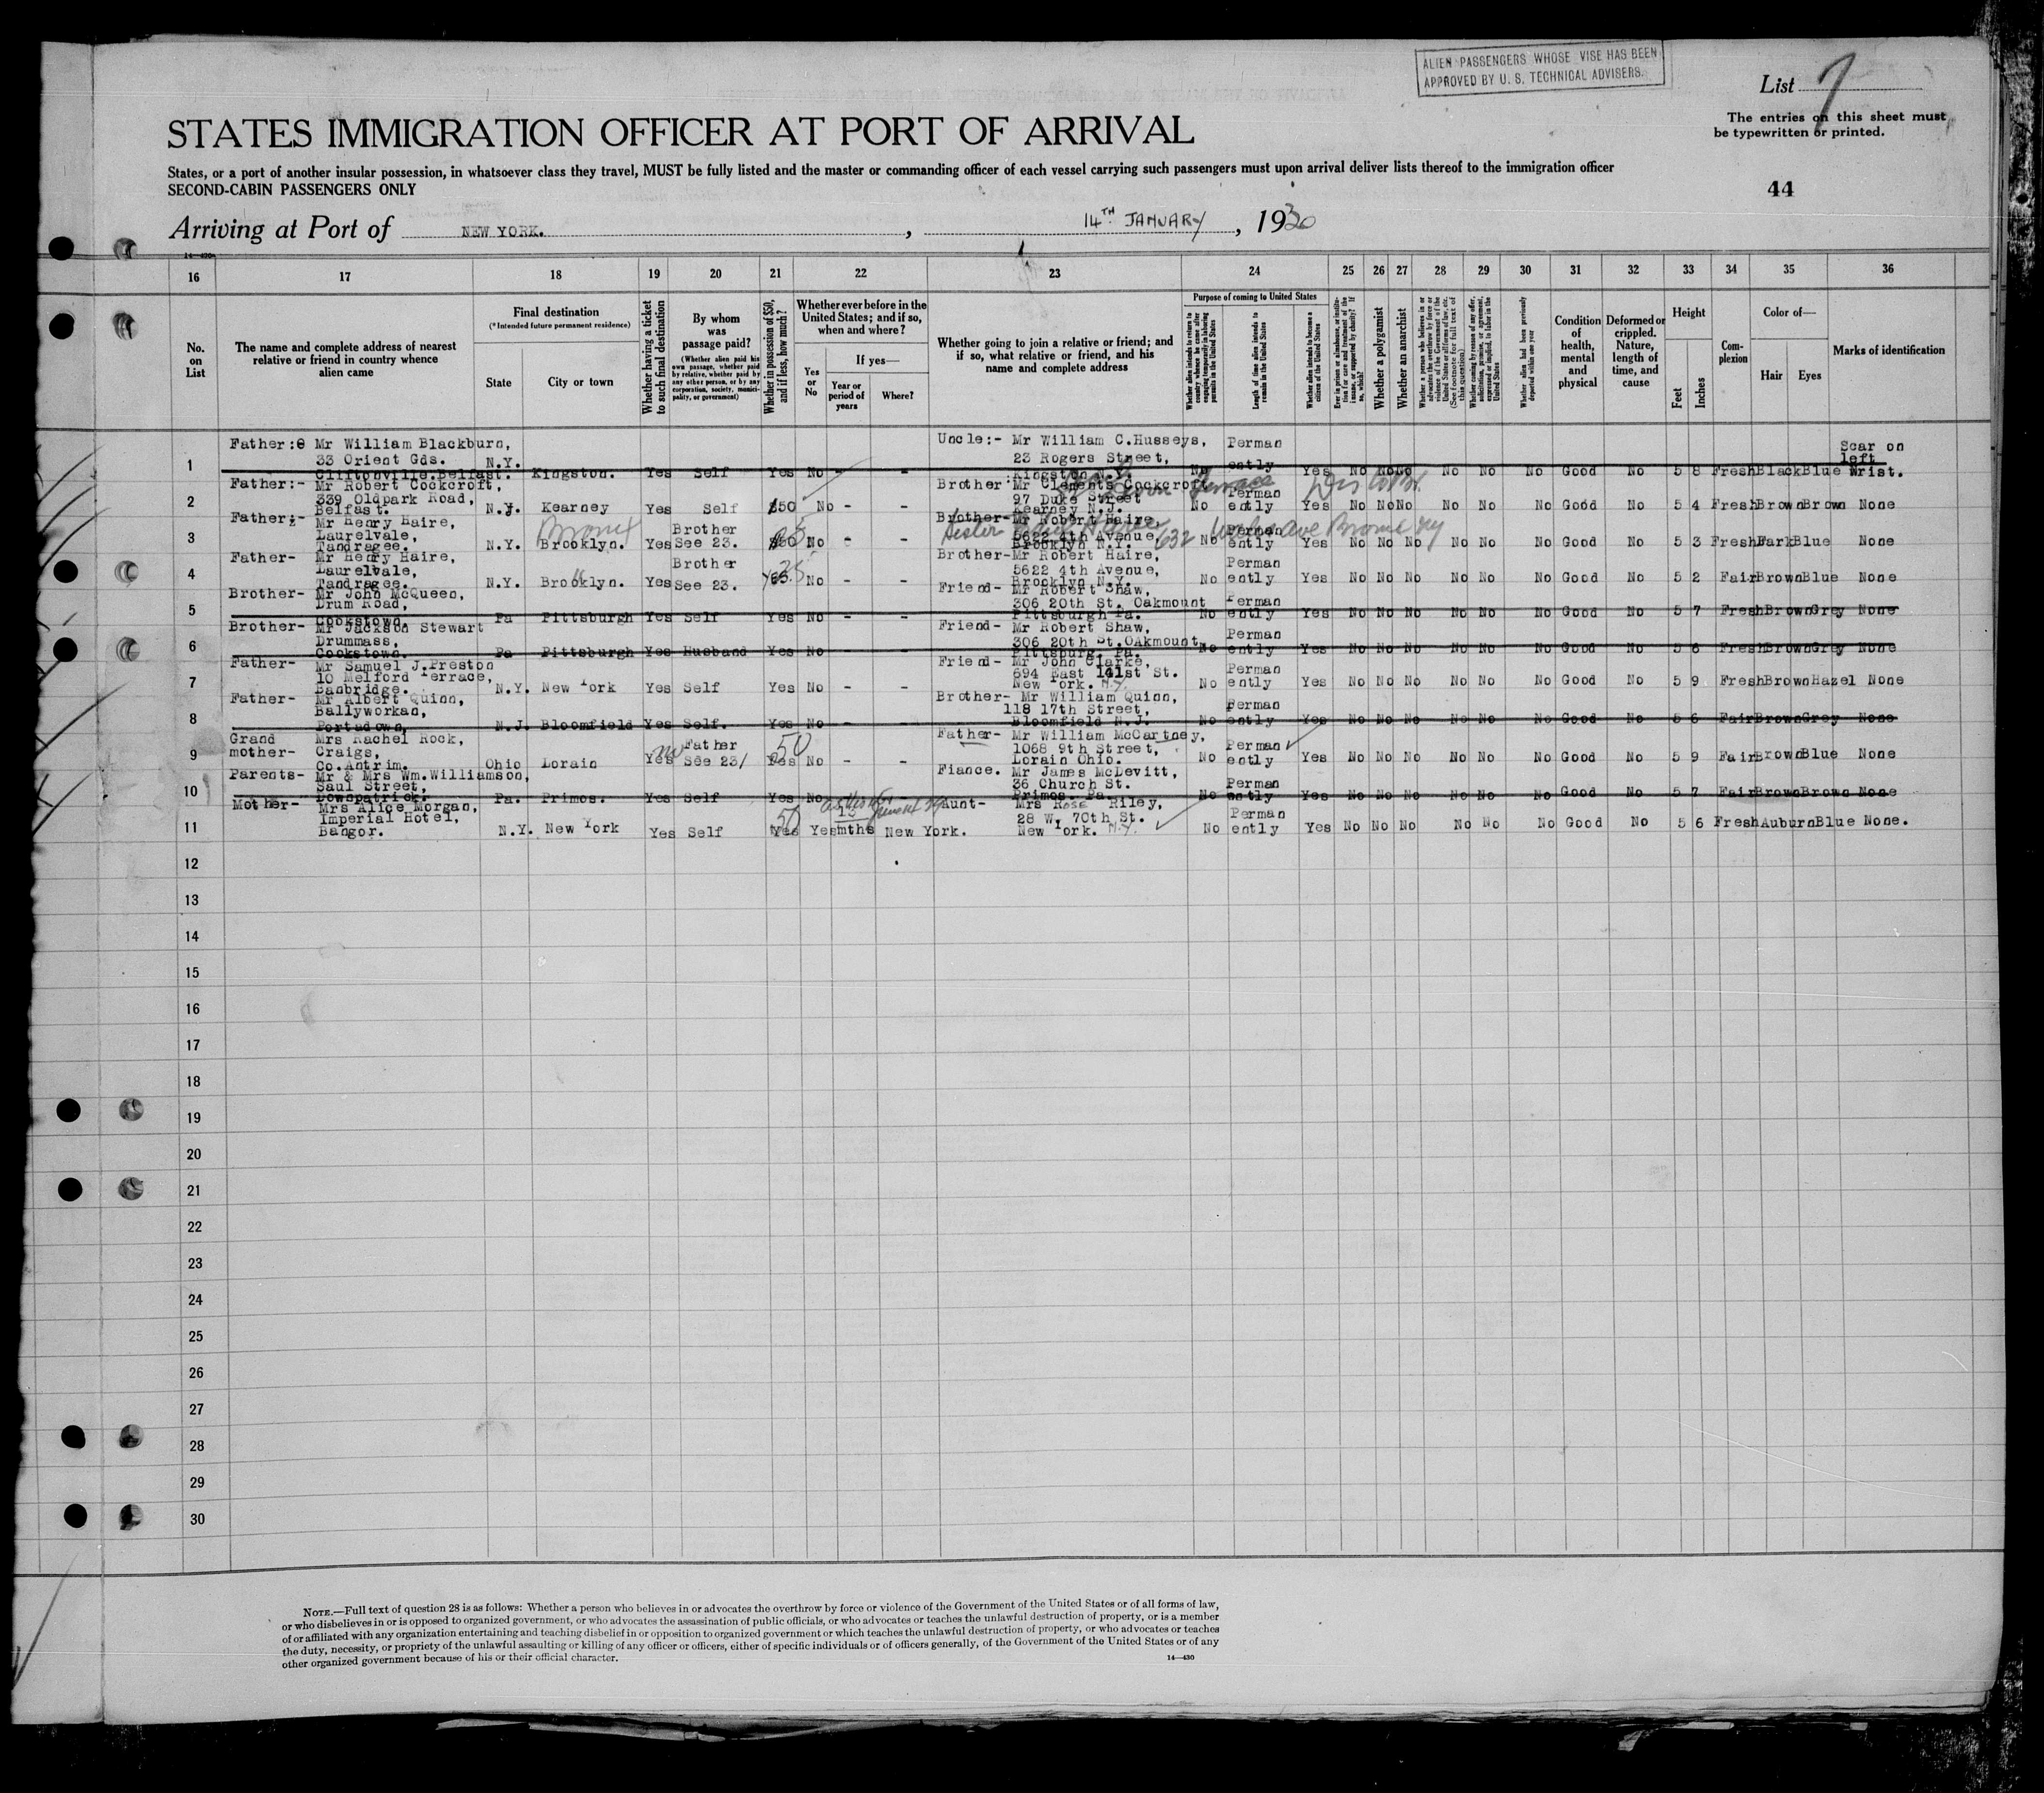 ALIEN PASSENGERS WHOSE VISE HAS BEEN
APPROVED BY U. S. TECHNICAL ADVISERS.
List 7
The entries on this sheet must
be typewritten or printed.
STATES IMMIGRATION OFFICER AT PORT OF ARRIVAL
States, or a port of another insular possession, in whatsoever class they travel, MUST be fully listed and the master or commanding officer of each vessel carrying such passengers must upon arrival deliver lists thereof to the immigration officer
SECOND-CABIN PASSENGERS ONLY
44
Arriving at Port of NEW YORK. , 14TH JANUARY , 1930
14—430
16 17 18 19 20 21 22 23 24 25 26 27 28 29 30 31 32 33 34 35 36
No. on List
The name and complete address of nearest relative or friend in country whence alien came
Final destination
(*Intended future permanent residence)
State
City or town
Whether having a ticket to such final destination
By whom was passage paid?
(Whether alien paid his own passage, whether paid by relative, whether paid by any other person, or by any corporation, society, municipality, or government)
Whether in possession of $50, and if less, how much?
Whether ever before in the United States; and if so, when and where?
Yes or No
If yes—
Year or period of years
Where?
Whether going to join a relative or friend; and if so, what relative or friend, and his name and complete address
Purpose of coming to United States
Whether alien intends to return to country whence he came after engaging temporarily in laboring pursuits in the United States
Length of time alien intends to remain in the United States
Whether alien intends to become a citizen of the United States
Ever in prison or almshouse, or institution for care and treatment of the insane, or supported by charity? If so, which?
Whether a polygamist
Whether an anarchist
Whether a person who believes in or advocates the overthrow by force or violence of the Government of the United States or all forms of law, etc. (See footnote for full text of this question)
Whether coming by reason of any offer, solicitation, promise, or agreement, expressed or implied, to labor in the United States
Whether alien had been previously deported within one year
Condition of health, mental and physical
Deformed or crippled. Nature, length of time, and cause
Height
Feet
Inches
Complexion
Color of—
Hair
Eyes
Marks of identification
1 Father:θ Mr William Blackburn, 33 Orient Gds. Cliftonville.Belfast. N.Y. Kingston. Yes Self Yes No - - Uncle:- Mr William C.Husseys, 23 Rogers Street, Kingston N.Y. No Perman ently Yes No No No No No No Good No 5 8 Fresh Black Blue Scar on left Wrist.
2 Father:- Mr Robert Cockcroft, 339 Oldpark Road, Belfast. N.J. Kearney Yes Self $50 No - - Brother: Mr Clements Cockcroft 97 Duke Street Kearney N.J. No Perman ently Yes No No No No No No Good No 5 4 Fresh Brown Brown None
3 Father:- Mr Henry Haire, Laurelvale, Tandragee. N.Y. Bronx Brooklyn. Yes Brother See 23. No - - Brother- Mr Robert Haire, 5622 4th Avenue, Brooklyn N.Y. Sister 632 Ave Bronx NY No Perman ently Yes No No No No No No Good No 5 3 Fresh Dark Blue None
4 Father- Mr Henry Haire, Laurelvale, Tandragee. N.Y. Brooklyn. " Yes Brother See 23. Yes. 25 No - - Brother- Mr Robert Haire, 5622 4th Avenue, Brooklyn N.Y. No Perman ently Yes No No No No No No Good No 5 2 Fair Brown Blue None
5 Brother- Mr John McQueen, Drum Road, Cookstown. Pa Pittsburgh Yes Self Yes No - - Friend- Mr Robert Shaw, 306 20th St. Oakmount Pittsburgh Pa. No Perman ently Yes No No No No No No Good No 5 7 Fresh Brown Grey None
6 Brother- Mr Jackson Stewart Drummass, Cookstown. Pa Pittsburgh Yes Husband Yes No - - Friend- Mr Robert Shaw, 306 20th St. Oakmount, Pittsburg. Pa. No Perman ently Yes No No No No No No Good No 5 6 Fresh Brown Grey None
7 Father- Mr Samuel J.Preston 10 Melford Terrace, Banbridge. N.Y. New York Yes Self Yes No - - Friend- Mr John Clarke, 694 East 141st St. New York. N.Y. No Perman ently Yes No No No No No No Good No 5 9 Fresh Brown Hazel None
8 Father- Mr Albert Quinn, Ballyworkan, Portadown, N.J. Bloomfield Yes Self. Yes No - - Brother- Mr William Quinn, 118 17th Street, Bloomfield N.J. No Perman ently Yes No No No No No No Good No 5 6 Fair Brown Grey None
9 Grand mother- Mrs Rachel Rock, Craigs, Co.Antrim. Ohio Lorain Yes no Father See 23/ Yes 50 No - - Father- Mr William McCartney, 1068 9th Street, Lorain Ohio. No Perman ently Yes No No No No No No Good No 5 9 Fair Brown Blue None
10 Parents- Mr & Mrs Wm.Williamson, Saul Street, Downpatrick. Pa. Primos. Yes Self Yes No - - Fiance. Mr James McDevitt, 36 Church St. Primos. Pa. No Perman ently Yes No No No No No No Good No 5 7 Fair Brown Brown None
11 Mother- Mrs Alice Morgan, Imperial Hotel, Bangor. N.Y. New York Yes Self Yes 50 Yes 13 mths New York. Aunt- Mrs Rose Riley, 28 W. 70th St. New York. N.Y. No Perman ently Yes No No No No No No Good No 5 6 Fresh Auburn Blue None.
12
13
14
15
16
17
18
19
20
21
22
23
24
25
26
27
28
29
30
NOTE.—Full text of question 28 is as follows: Whether a person who believes in or advocates the overthrow by force or violence of the Government of the United States or of all forms of law,
or who disbelieves in or is opposed to organized government, or who advocates the assassination of public officials, or who advocates or teaches the unlawful destruction of property, or is a member
of or affiliated with any organization entertaining and teaching disbelief in or opposition to organized government or which teaches the unlawful destruction of property, or who advocates or teaches
the duty, necessity, or propriety of the unlawful assaulting or killing of any officer or officers, either of specific individuals or of officers generally, of the Government of the United States or of any
other organized government because of his or their official character.
14—430